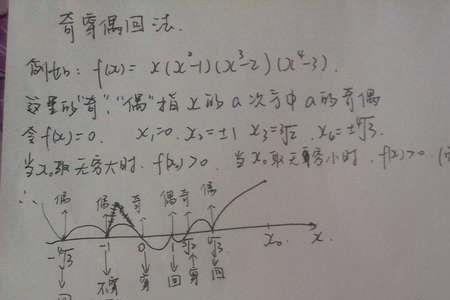 奇穿偶回法.
例如: f(x)= x(x²-1)(x³-2)(x⁴-3).
这里的"奇""偶"指x的a次方中a的奇偶
令f(x)=0. x₁=0. x₂=±1 x₃=³√2. x₄=±⁴√3.
当x₀取无穷大时. f(x)>0. 当x₀取无穷小时. f(x)>0.
∴ 偶 偶 奇 偶 奇 偶
-⁴√3 -1 0 1 ³√2 ⁴√3 x₀ x.
回 穿 回 穿 回